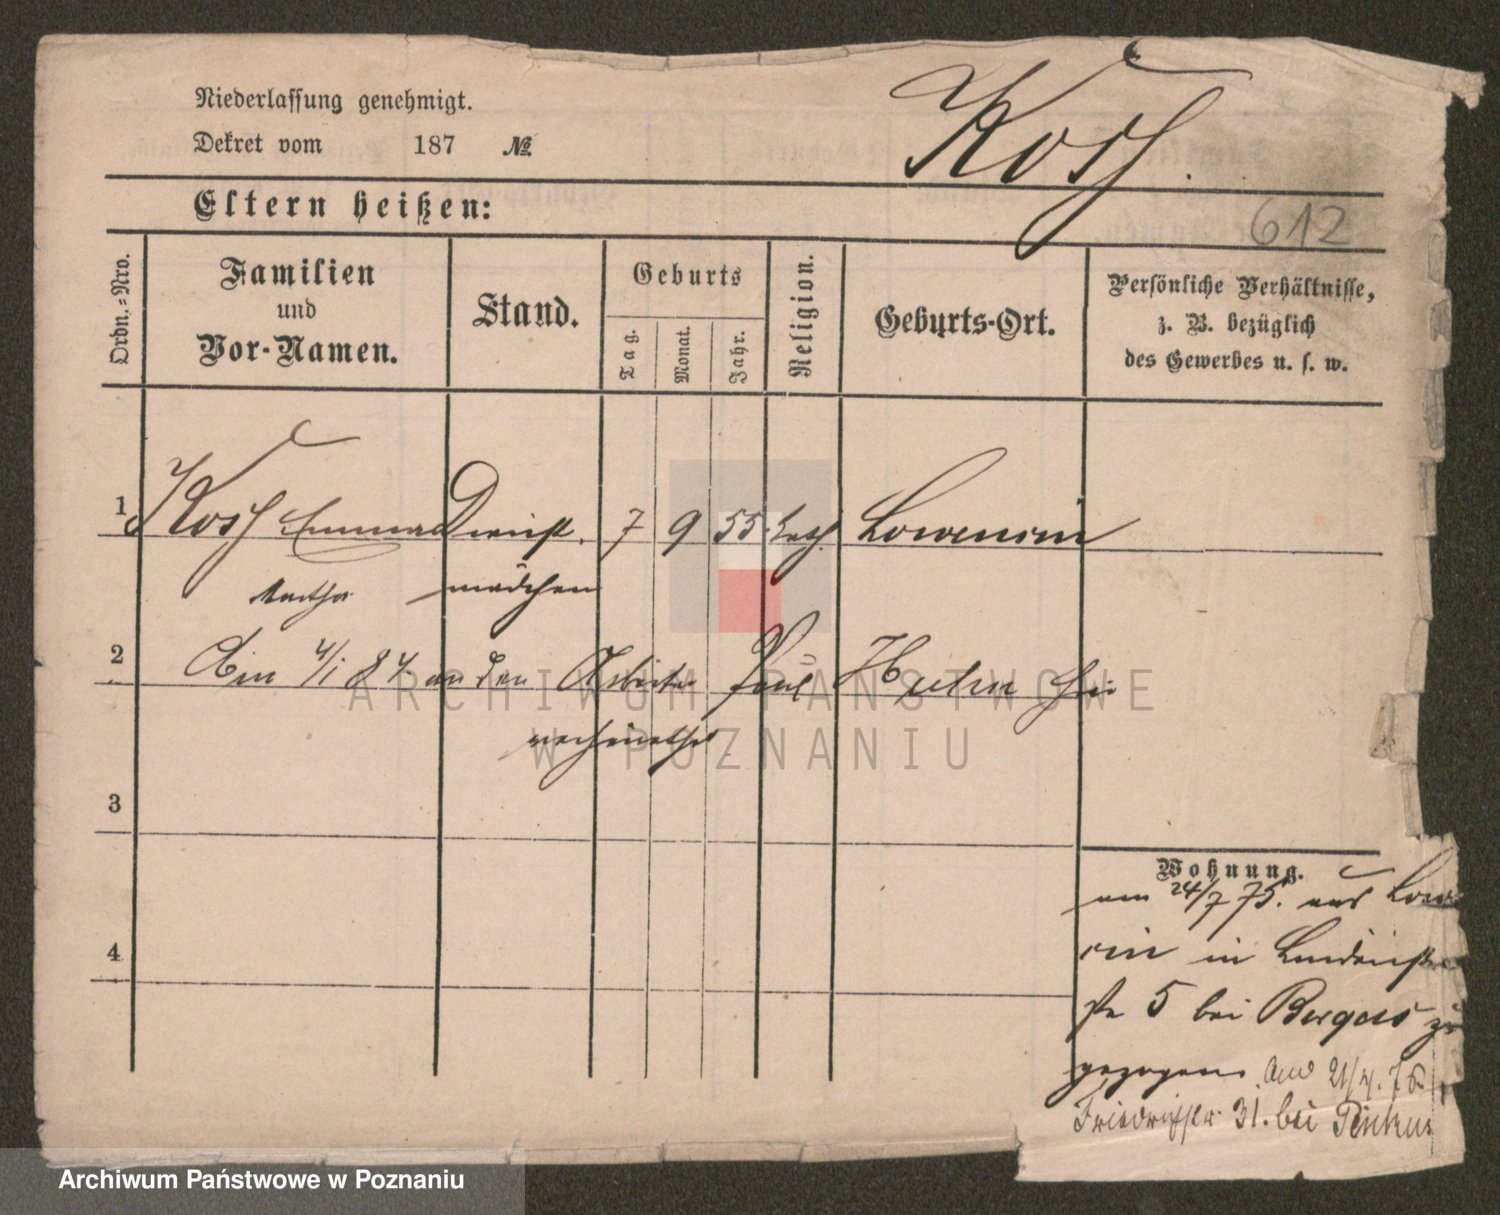 Niederlassung genehmigt.
Dekret vom 187 №
Kosch.
Eltern heißen:
612
Ordn.=Nro.
Familien
und
Vor-Namen.
Stand.
Geburts
Tag.
Monat.
Jahr.
Religion.
Geburts-Ort.
Persönliche Verhältnisse,
z. B. bezüglich
des Gewerbes u. s. w.
1 Kosch Emma Dienst 7 9 55 kath. Lowencin
Martha mädchen
2 Am 4/1 84 an den Arbeiter Paul Huhn hier
verheirathet
3
4
Wohnung.
am 24/7 75. aus Lowen
cin in
5 bei zu
gezogen. And 21/4. 76
Friedrichstr. 31. bei Pinkus
ARCHIWUM PAŃSTWOWE
W POZNANIU
Archiwum Państwowe w Poznaniu